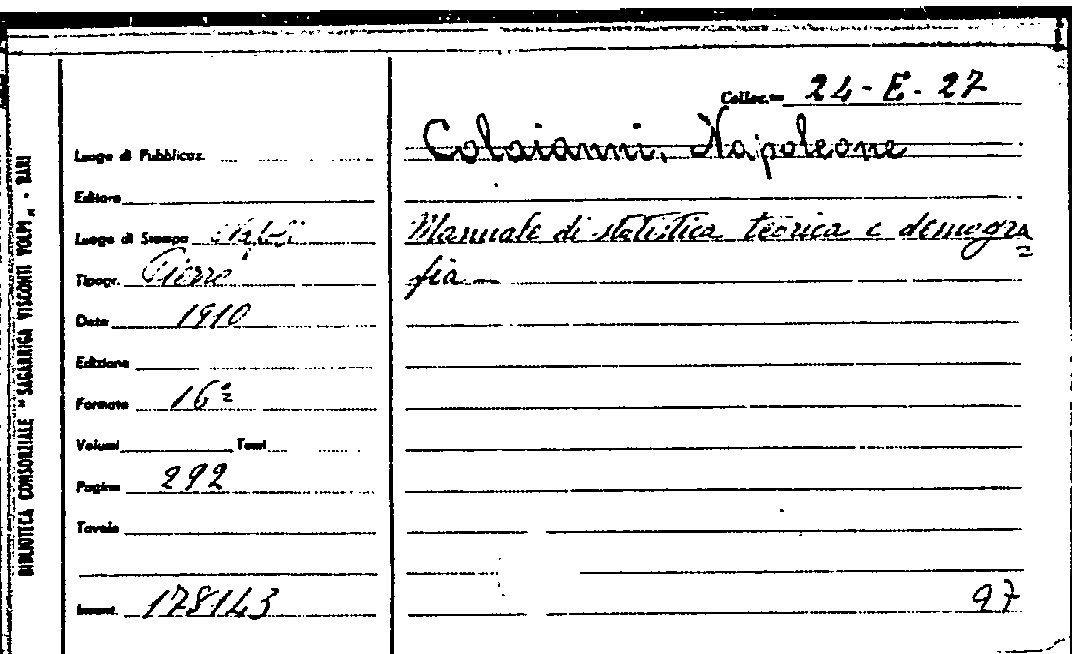 BIBLIOTECA CONSORZIALE "SAGARRIGA VISCONTI VOLPI„ - BARI
Colloc. 24 - E. - 27
Colaianni, Napoleone
Manuale di statistica teorica e demogra=
fia
97
Luogo di Pubblicaz.
Editore
Luogo di Stampa Napoli
Tipogr. Pierro
Data 1910
Edizione
Formato 16°
Volumi Tomi
Pagine 292
Tavole
Invent. 178143